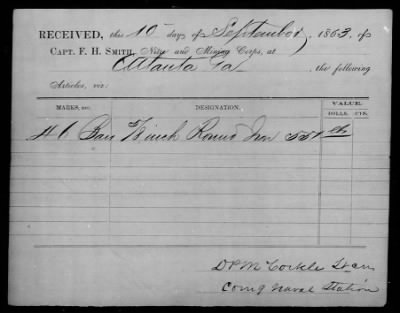 RECEIVED, this 10 day of September, 1863, of
CAPT. F. H. SMITH, Nitre and Mining Corps, at
Atlanta Ga, the following
Articles, viz:
MARKS, &c. DESIGNATION. VALUE.
DOLLS. CTS.
46 Bars 5/8 inch Round Iron 551 lbs
D P McCorkle Lt CSN
Comg Naval Station